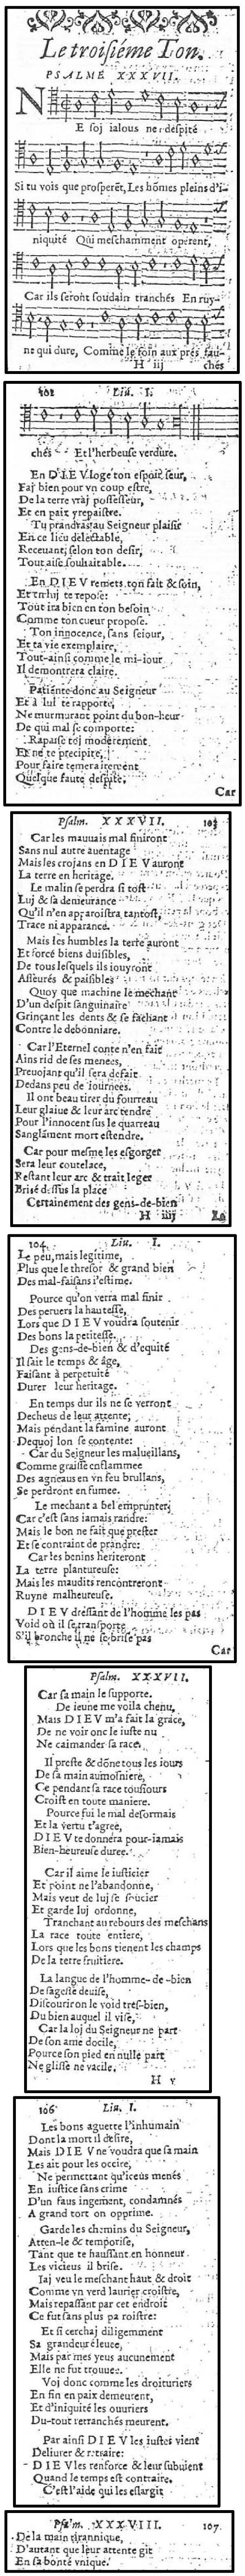 Le troisiéme Ton.
PSALME XXXVII.
NE soj ialous ne despité
Si tu vois que prosperēt, Les hōmes pleins d'i-
niquité Qui meschamment operent,
Car ils seront soudain tranchés En ruy-
ne qui dure, Comme le foin aux prés fau-
H iij chés
102 Liu. I.
chés Et l'herbeuse verdure.
En DIEV loge ton espoir seur,
Faj bien pour vn coup estre,
De la terre vraj possesseur,
Et en paix t'repaistre.
Tu prandras au Seigneur plaisir
En ce lieu delectable,
Receuant selon ton desir,
Tout aise souhaitable.
En DIEV remets ton fait & soin,
Et en luj te repose:
Tout ira bien en ton besoin
Comme ton cueur propose.
Ton innocence, sans seiour,
Et ta vie exemplaire,
Tout-ainsi comme le mi-iour
Il demontrera claire.
Patiente donc au Seigneur
Et à luj te rapporte,
Ne murmurant point du bon-heur
De qui mal se comporte:
Rapaise toj moderément
Et ne te precipite,
Pour faire temerairement
Quelque faute despite.
Car
Psalm. XXXVII. 103
Car les mauuais mal finiront
Sans nul autre auentage
Mais les crojans en DIEV auront
La terre en heritage.
Le malin se perdra si tost
Luj & sa demeurance
Qu'il n'en apparoistra tantost,
Trace ni apparance.
Mais les humbles la terre auront
Et force biens duisibles,
De tous lesquels ils iouyront
Asseurés & paisibles
Quoy que machine le mechant
D'un despit sanguinaire
Grinçant les dents & se fachant
Contre le debonnaire.
Car l'Eternel conte n'en fait
Ains rid de ses menées,
Preuojant qu'il sera defait
Dedans peu de iournées.
Il ont beau tirer du fourreau
Leur glaiue & leur arc tendre
Pour l'innocent sus le quarreau
Sanglāment mort estendre.
Car pour mesme les esgorger
Sera leur coutelace,
Restant leur arc & trait leger
Brisé dessus la place
Certainement des gens-de-bien
H iiij Le
104 Liu. I.
Le peu, mais legitime,
Plus que le thresor & grand bien
Des mal-faisans i'estime.
Pource qu'on verra mal finir
Des peruers la hautesse,
Lors que DIEV voudra soutenir
Des bons la petitesse.
Des gens-de-bien & d'equité
Il sait le temps & âge,
Faisant à perpetuité
Durer leur heritage.
En temps dur ils ne se verront
Decheus de leur attente;
Mais pendant la famine auront
Dequoj lon se contente:
Car du Seigneur les malueillans,
Comme graisse enflammee
Des agneaus en vn feu brullans,
Se perdront en fumee.
Le mechant a bel emprunter,
Car c'est sans jamais randre:
Mais le bon ne fait que prester
Et se contraint de prandre:
Car les benins heriteront
La terre plantureuse:
Mais les maudits rencontreront
Ruyne malheureuse.
DIEV dressant de l'homme les pas
Void où il se transporte
S'il bronche il ne se brise pas
Car
Psalm. XXXVII.
Car sa main le supporte.
De ieune me voila chenu,
Mais DIEV m'a fait la grace,
De ne voir onc le iuste nu
Ne caimander sa race.
Il preste & dōne tous les iours
De sa main aumosniere,
Ce pendant sa race tousiours
Croist en toute maniere.
Pource fui le mal desormais
Et la vertu t'agree,
DIEV te donnera pour-iamais
Bien-heureuse duree.
Car il aime le iusticier
Et point ne l'abandonne,
Mais veut de luj se soucier
Et garde luj ordonne,
Tranchant au rebours des meschans
La race toute entiere,
Lors que les bons tienent les champs
De la terre fruitiere.
La langue de l'homme-de-bien
De sagesse deuise,
Discourir on le void tres-bien,
Du bien auquel il vise,
Car la loj du Seigneur ne part
De son ame docile,
Pource son pied en nulle part
Ne glisse ne vacile.
H v
106 Liu. I.
Les bons aguette l'inhumain
Dont la mort il desire,
Mais DIEV ne voudra que sa main
Les ait pour les occire,
Ne permettant qu'iceus menés
En iustice sans crime
D'un faus iugement, condamnés
A grand tort on opprime.
Garde les chemins du Seigneur,
Atten-le & temporise,
Tant que te haussant en honneur
Les vicieus il brise.
Iaj veu le meschant haut & droit
Comme vn verd laurier croistre,
Mais repassant par cet endroit
Ce fut sans plus paroistre:
Et si cerchaj diligemment
Sa grandeur éleuee,
Mais par mes yeus aucunement
Elle ne fut trouuee.
Voj donc comme les droituriers
En fin en paix demeurent,
Et d'iniquité les ouuriers
Du-tout retranchés meurent.
Par ainsi DIEV les iustes vient
Deliurer & retraire:
DIEV les renforce & leur subuient
Quand le temps est contraire.
C'est l'aide qui les eslargit
Psa'm. XXXVIII. 107
De la main tirannique,
D'autant que leur attente git
En sa bonté vnique.